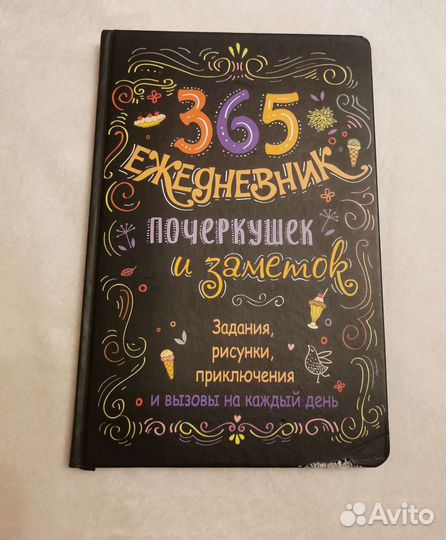 365
ЕЖЕДНЕВНИК
ПОЧЕРКУШЕК
и заметок
Задания,
рисунки,
приключения
и вызовы на каждый день
Avito